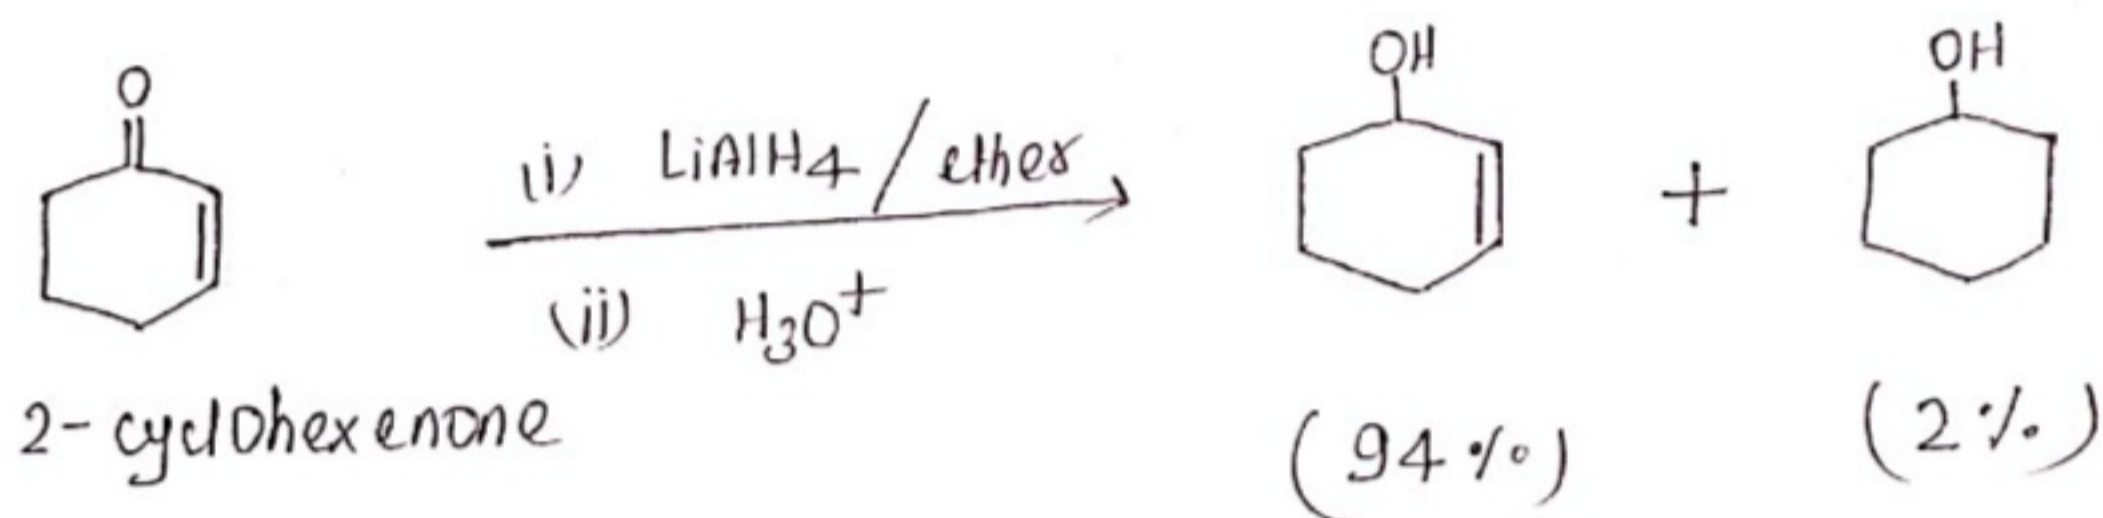 O
(i) LiAlH4 / ether
(ii) H3O+
OH
+
OH
2-cyclohexenone
(94%)
(2%)